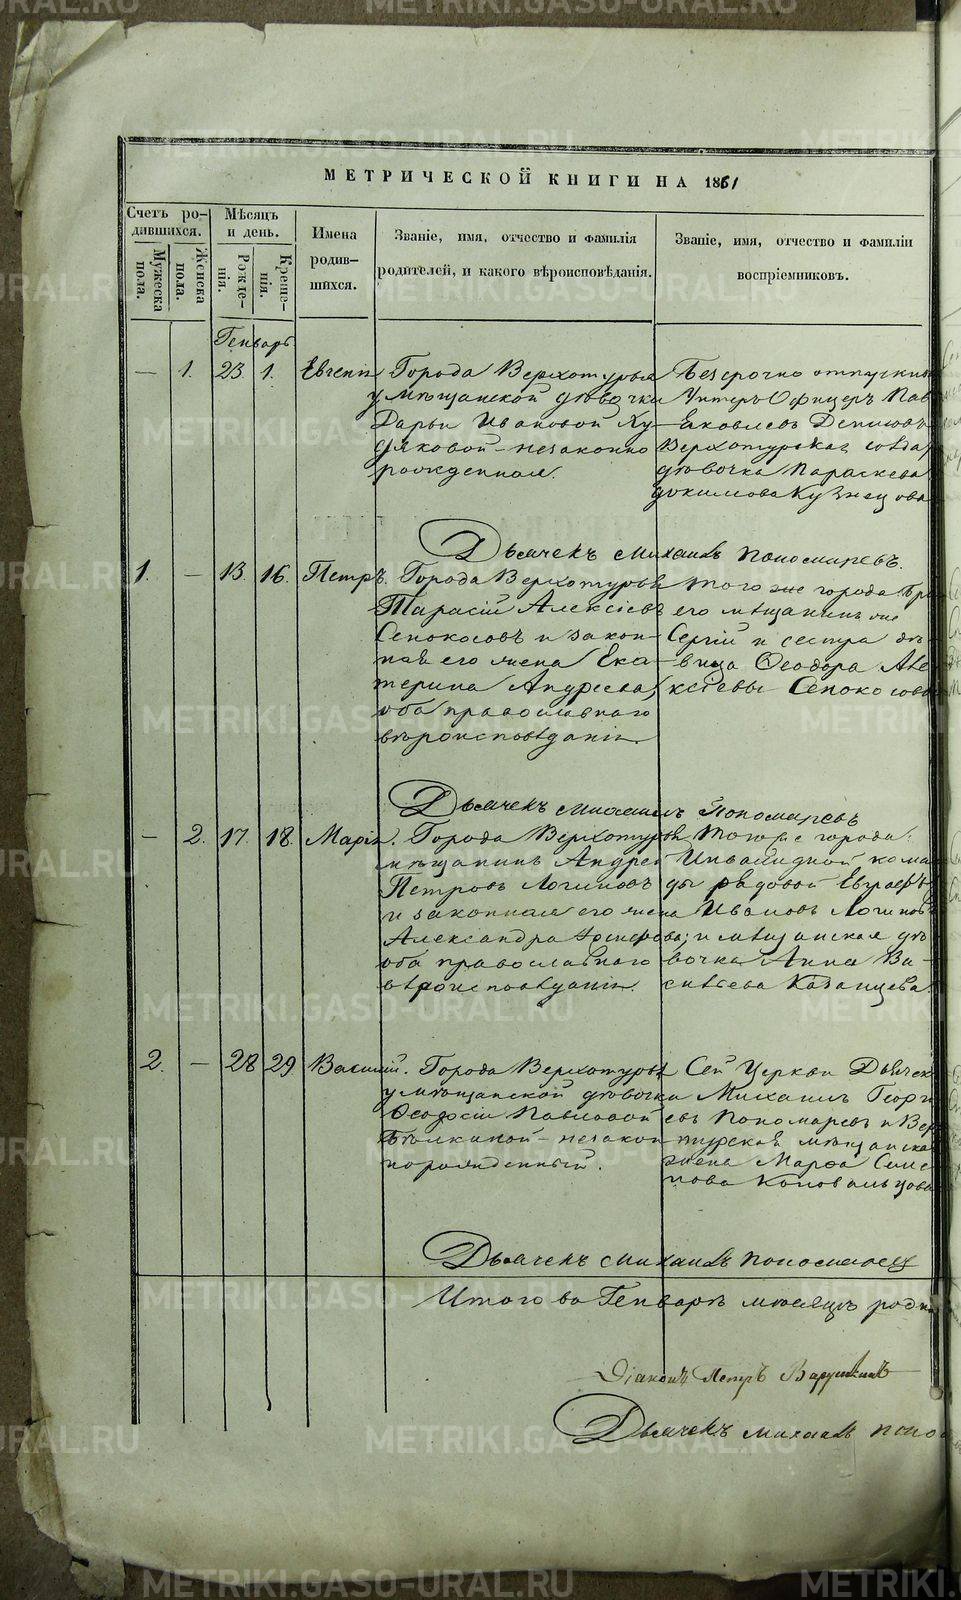 МЕТРИЧЕСКОЙ КНИГИ НА 1861
Счетъ родившихся.
Мужеска пола.
Женска пола.
Мѣсяцъ и день.
Рожденія.
Крещенія.
Имена родившихся.
Званіе, имя, отчество и фамилія родителей, и какого вѣроисповѣданія.
Званіе, имя, отчество и фамиліи воспріемниковъ.
Генварь
— 1. 23 1. Евгенія
Города Верхотурья
у мѣщанской дѣвочки
Дарьи Ивановой Ху-
дяковой – незаконно
рожденная.
Безсрочно отпускной
Унтеръ Офицеръ Пав
Яковлевъ
Верхотурская
дѣвочка Параскева
Кузнецова
Дьячекъ Михаилъ Пономаревъ.
1. — 13 16. Петръ.
Города Верхотурья
Тарасій Алексѣевъ
Сенокосовъ и закон-
ная его жена Ека-
терина Андреева,
оба православнаго
вѣроисповѣданія.
того же города
его мѣщанинъ
Сергій и сестра дѣ-
вица Ѳеодора Але
ксѣевы Сенокосовы
Дьячекъ Михаилъ Пономаревъ
— 2. 17. 18. Марія.
Города Верхотурья
мѣщанинъ Андрей
Петровъ Логиновъ
и законная его жена
Александра
оба православнаго
вѣроисповѣданія.
того же города
Инвалидной кома
ды рядовой Евграфъ
Ивановъ Логиновъ
и мѣщанская дѣ
вочка Анна Ва-
сильева Казанцева.
2. — 28 29 Василій.
Города Верхотурья
у мѣщанской дѣвочки
Ѳеодосіи Павловой
Бѣлкиной – незакон
норожденный.
Сей Церкви Дьячек
Михаилъ Георгі
евъ Пономаревъ и Вер
турская мѣщанска
жена Марѳа Семе
нова Коновальцова
Дьячекъ Михаилъ Пономарев
Итого во Генварѣ мѣсяцѣ роди
Діаконъ Петръ
Дьячекъ Михаилъ Поно
METRIKI.GASO-URAL.RU